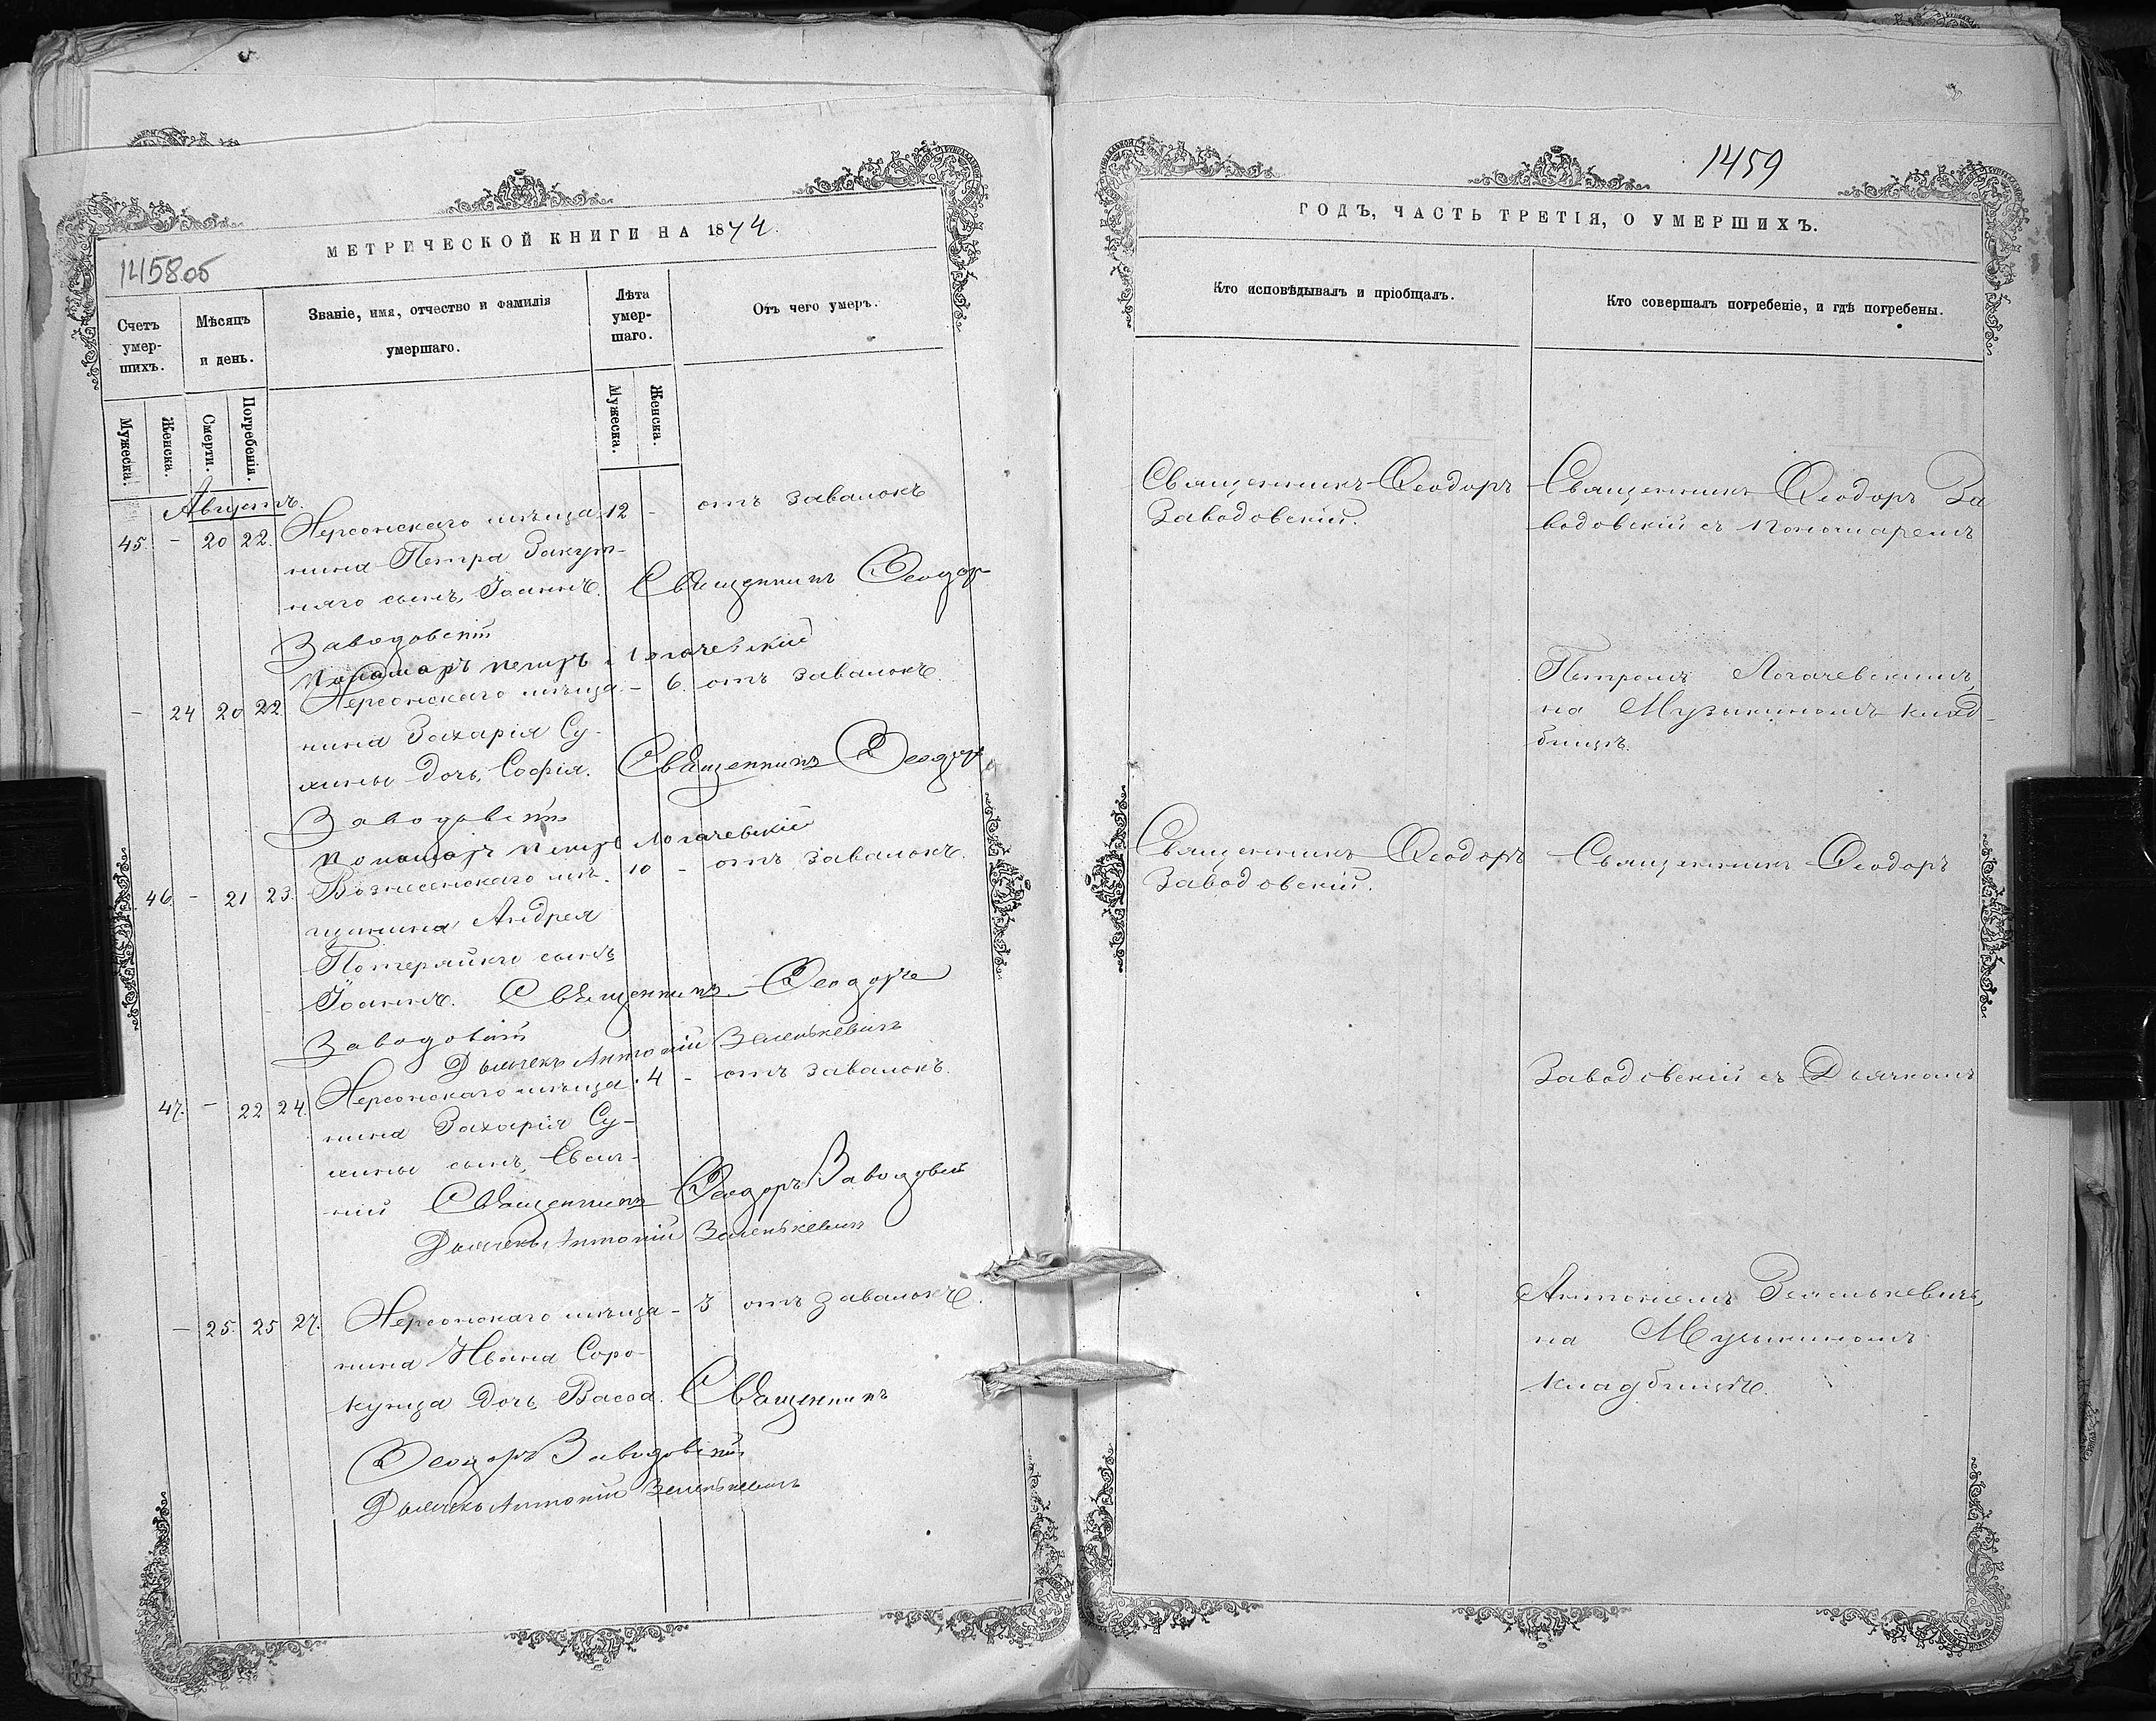 МЕТРИЧЕСКОЙ КНИГИ НА 1874.
1458об
Счетъ умершихъ.
Мѣсяцъ и день.
Званіе, имя, отчество и фамилія умершаго.
Лѣта умершаго.
Отъ чего умеръ.
Мужеска.
Женска.
Смерти.
Погребенія.
Мужеска.
Женска.
Августъ.
45. - 20 22. Херсонскаго мѣща- 12 - отъ завалокъ
нина Петра Закут-
няго сынъ, Іоаннъ. Священникъ Ѳеодоръ
Заводовскій
Пономарь Петръ Логачевскій
- 24 20 22 Херсонскаго мѣща- - 6. отъ завалокъ.
нина Захарія Су-
хины дочь, Софія. Священникъ Ѳеодоръ
Заводовскій
Пономарь Петръ Логачевскій
46. - 21 23. Вознесенскаго мѣ- 10 - отъ завалокъ.
щанина Андрея
сынъ
Іоаннъ. Священникъ Ѳеодоръ
Заводовскій
Дьячекъ Антоній Зеленкевичъ
47. - 22 24. Херсонскаго мѣща- 4 - отъ завалокъ.
нина Захарія Су-
хины сынъ, Евѳи-
мій Священникъ Ѳеодоръ Заводовскій
Дьячекъ Антоній Зеленкевичъ
- 25. 25 27. Херсонскаго мѣща- - 3 отъ завалокъ.
нина Ивана Соро-
купда дочь, Васса. Священникъ
Ѳеодоръ Заводовскій
Дьячекъ Антоній Зеленкевичъ
1459
ГОДЪ, ЧАСТЬ ТРЕТІЯ, О УМЕРШИХЪ.
Кто исповѣдывалъ и пріобщалъ.
Кто совершалъ погребеніе, и гдѣ погребены.
Священникъ Ѳеодоръ
Заводовскій.
Священникъ Ѳеодоръ За
водовскій съ Пономаремъ
Петромъ Логачевскимъ,
на Музыкиномъ клад-
бищѣ.
Священникъ Ѳеодоръ
Заводовскій.
Священникъ Ѳеодоръ
Заводовскій съ Дьячкомъ
Антоніемъ Зеленкевичъ,
на Музыкиномъ
кладбищѣ.